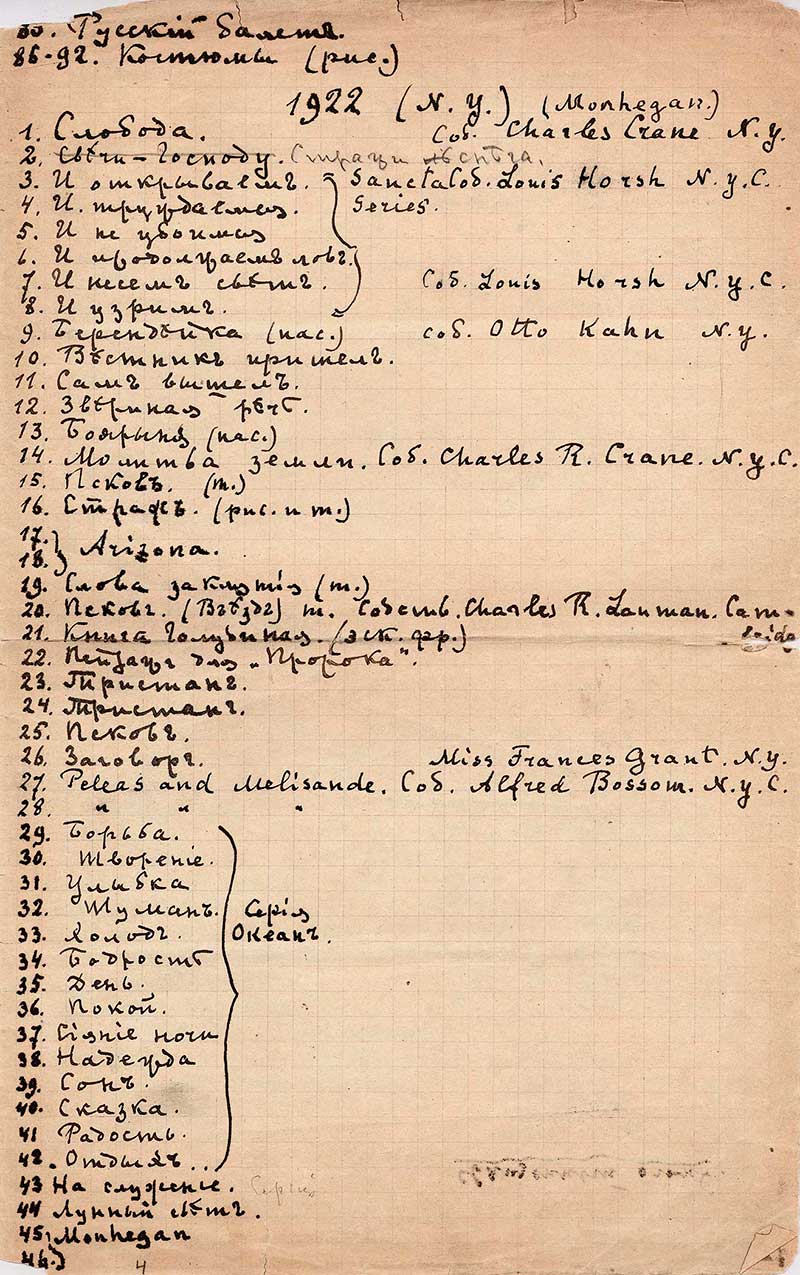 85. Русскій балетъ.
86-92. Костюмы (рис.)
1922 (N. Y.) (Monhegan.)
1. Слобода. Соб. Charles Crane N.Y.
2. Свѣчи - Господу. Стражи
3. И открываемъ. Sancta Соб. Louis Horsh N.Y.C.
4. И трудгаемся. Series.
5. И не убоимся
6. И продолжаемъ ловъ.
7. И несемъ свѣтъ. Соб. Louis Horsh N.Y.C.
8. И узримъ.
9. Берендѣйка (пас.) соб. Otto Kahn N.Y.
10. Вѣстникъ пришелъ.
11. Самъ вышелъ.
12. Звѣриная рѣчь.
13. Боярыня (пас.)
14. Молитва земли. Соб. Charles R. Crane. N.Y.C.
15. Псковъ. (т.)
16. Стражъ. (рис. и т.)
17.} Arizona.
18.
19. Слова заклятія (т.)
20. Псковъ. (Въѣздъ) т. Собств. Charles R. Lanman. Cam-
21. Книга Голубиная. (эск. фр.)
22. Пейзажъ для „Пророка".
23. Тристанъ.
24. Тристанъ.
25. Псковъ.
26. Заговоръ. Miss Frances Grant. N.Y.
27. Peleas and Melisande. Соб. Alfred Bossom. N.Y.C.
28. " " "
29. Борьба.
30. Твореніе.
31. Улыбка
32. Туманъ. Серія
33. Холодъ. Океанъ.
34. Бодрость
35. День.
36. Покой.
37. Сіяніе ночи
38. Надежда
39. Сонъ.
40. Сказка.
41 Радость.
42. Отдыхъ..
43 На служенье.
44 Лунный свѣтъ.
45. Monhegan
46.
4